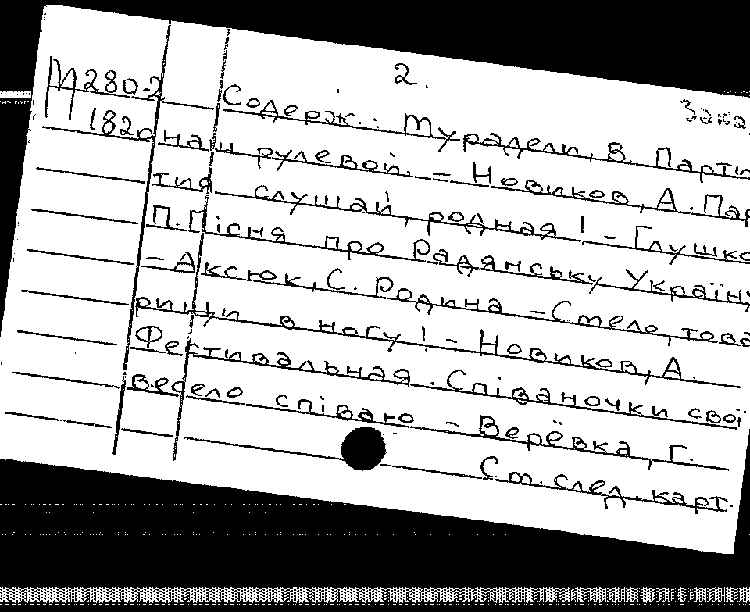 2.
М280-2
Содерж.: Турадели, В. Парти
182
наш рулевой. – Новиков, А. Пар
тия слушай, родная! – Глушко
П. Пісня про Радянську Україну
– Аксюк, С. Родина – Смело, това
рищи в ногу! – Новиков, А.
Фестивальная. Співаночки свої
весело співаю – Верёвка, Г.
См. след. карт.